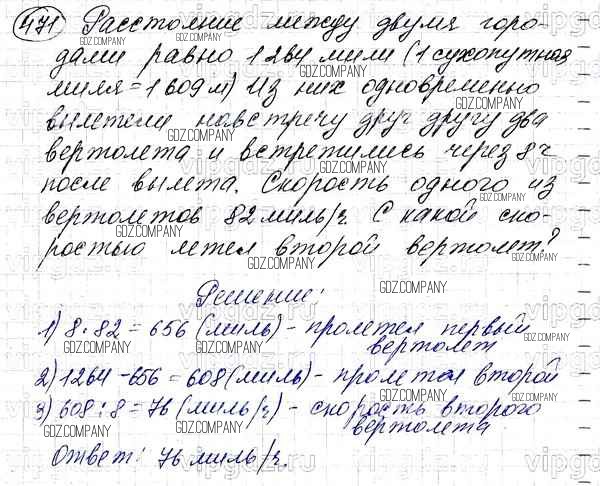 471 Расстояние между двумя горо-
дами равно 1264 мили (1 сухопутная
миля = 1 609 м) Из них одновременно
вылетели навстречу друг другу два
вертолета и встретились через 8 ч
после вылета. Скорость одного из
вертолетов 82 миль/ч. С какой ско-
ростью летел второй вертолет?
Решение:
1) 8 · 82 = 656 (миль) - пролетел первый
вертолет
2) 1264 - 656 = 608 (миль) - пролетел второй
3) 608 : 8 = 76 (миль/ч) - скорость второго
вертолета
Ответ: 76 миль/ч.